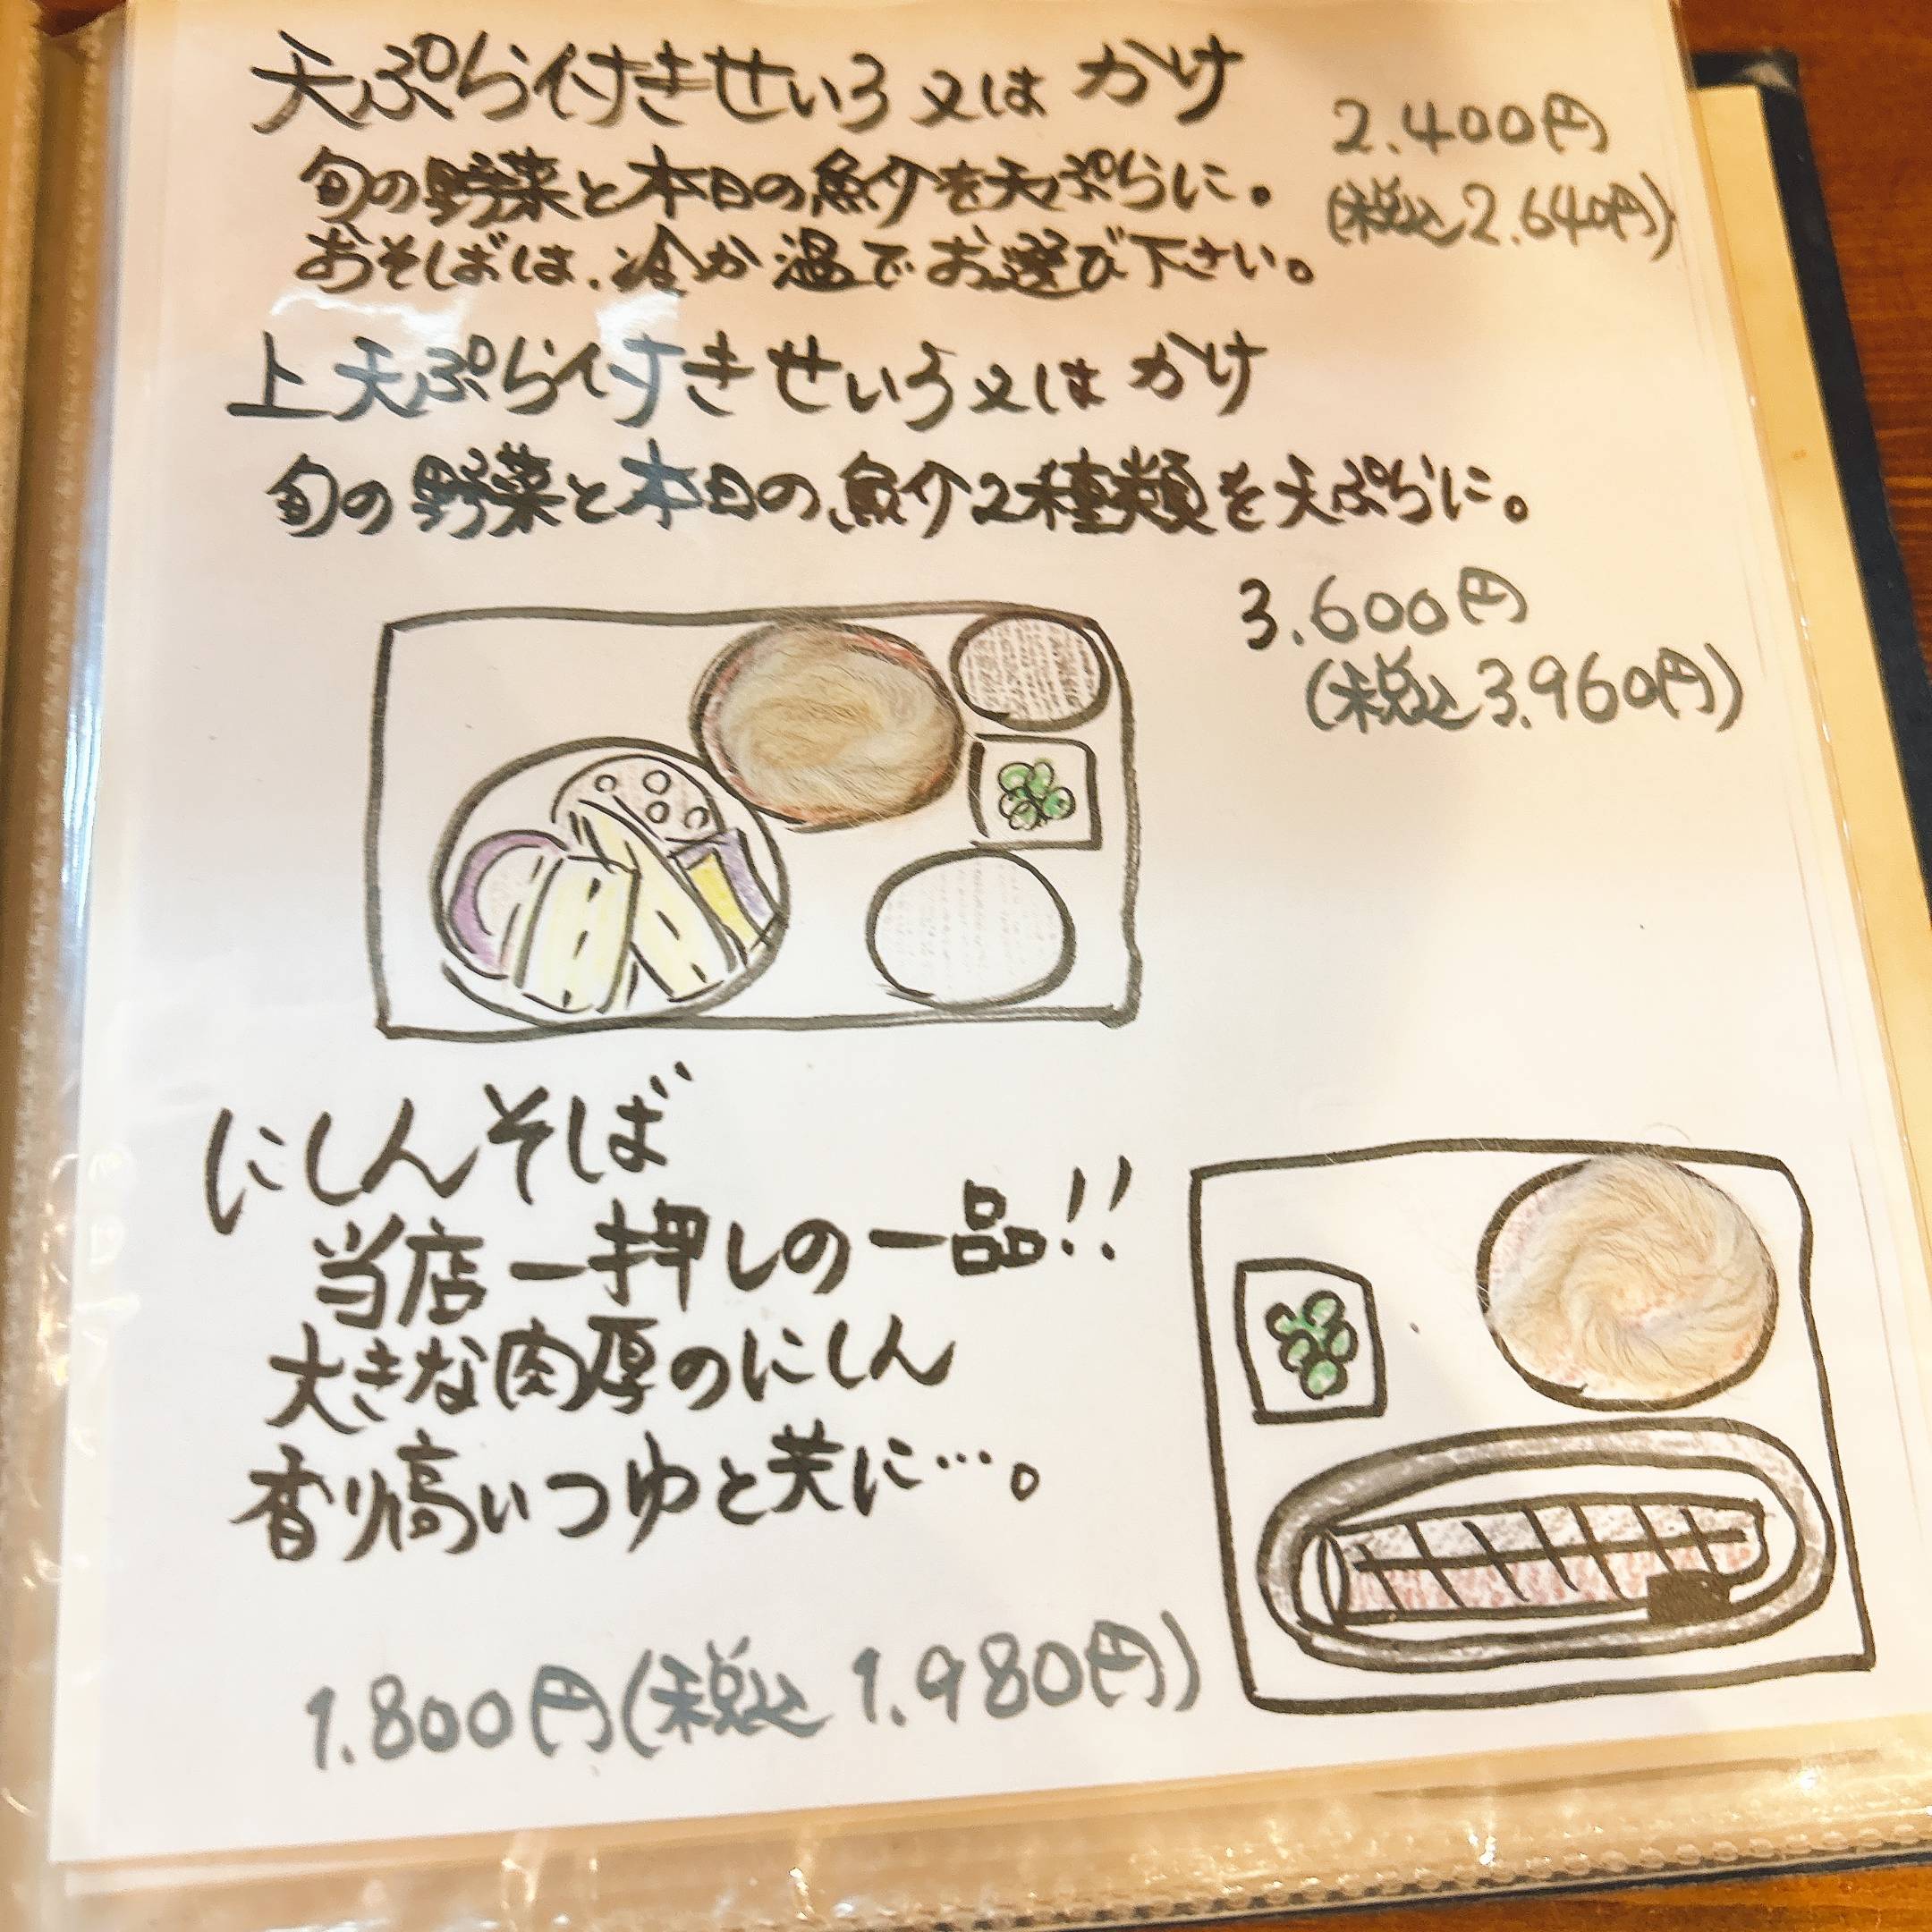 天ぷら付きせいろ又はかけ
2.400円
旬の野菜と本日の魚介を天ぷらに。
(税込2.640円)
おそばは、冷か温でお選び下さい。
上天ぷら付きせいろ又はかけ
旬の野菜と本日の魚介2種類を天ぷらに。
3.600円
(税込3.960円)
にしんそば
当店一押しの一品!!
大きな肉厚のにしん
香り高いつゆと共に…。
1.800円(税込 1.980円)